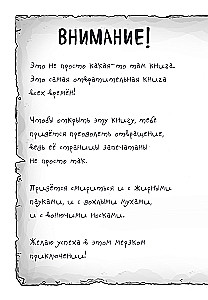 ВНИМАНИЕ!
Это не просто какая-то там книга.
Это самая отвратительная книга
всех времён!
Чтобы открыть эту книгу, тебе
придётся преодолеть отвращение,
ведь её страницы запечатаны
не просто так.
Придётся смириться и с жирными
пауками, и с дохлыми мухами,
и с вонючими носками.
Желаю успеха в этом мерзком
приключении!